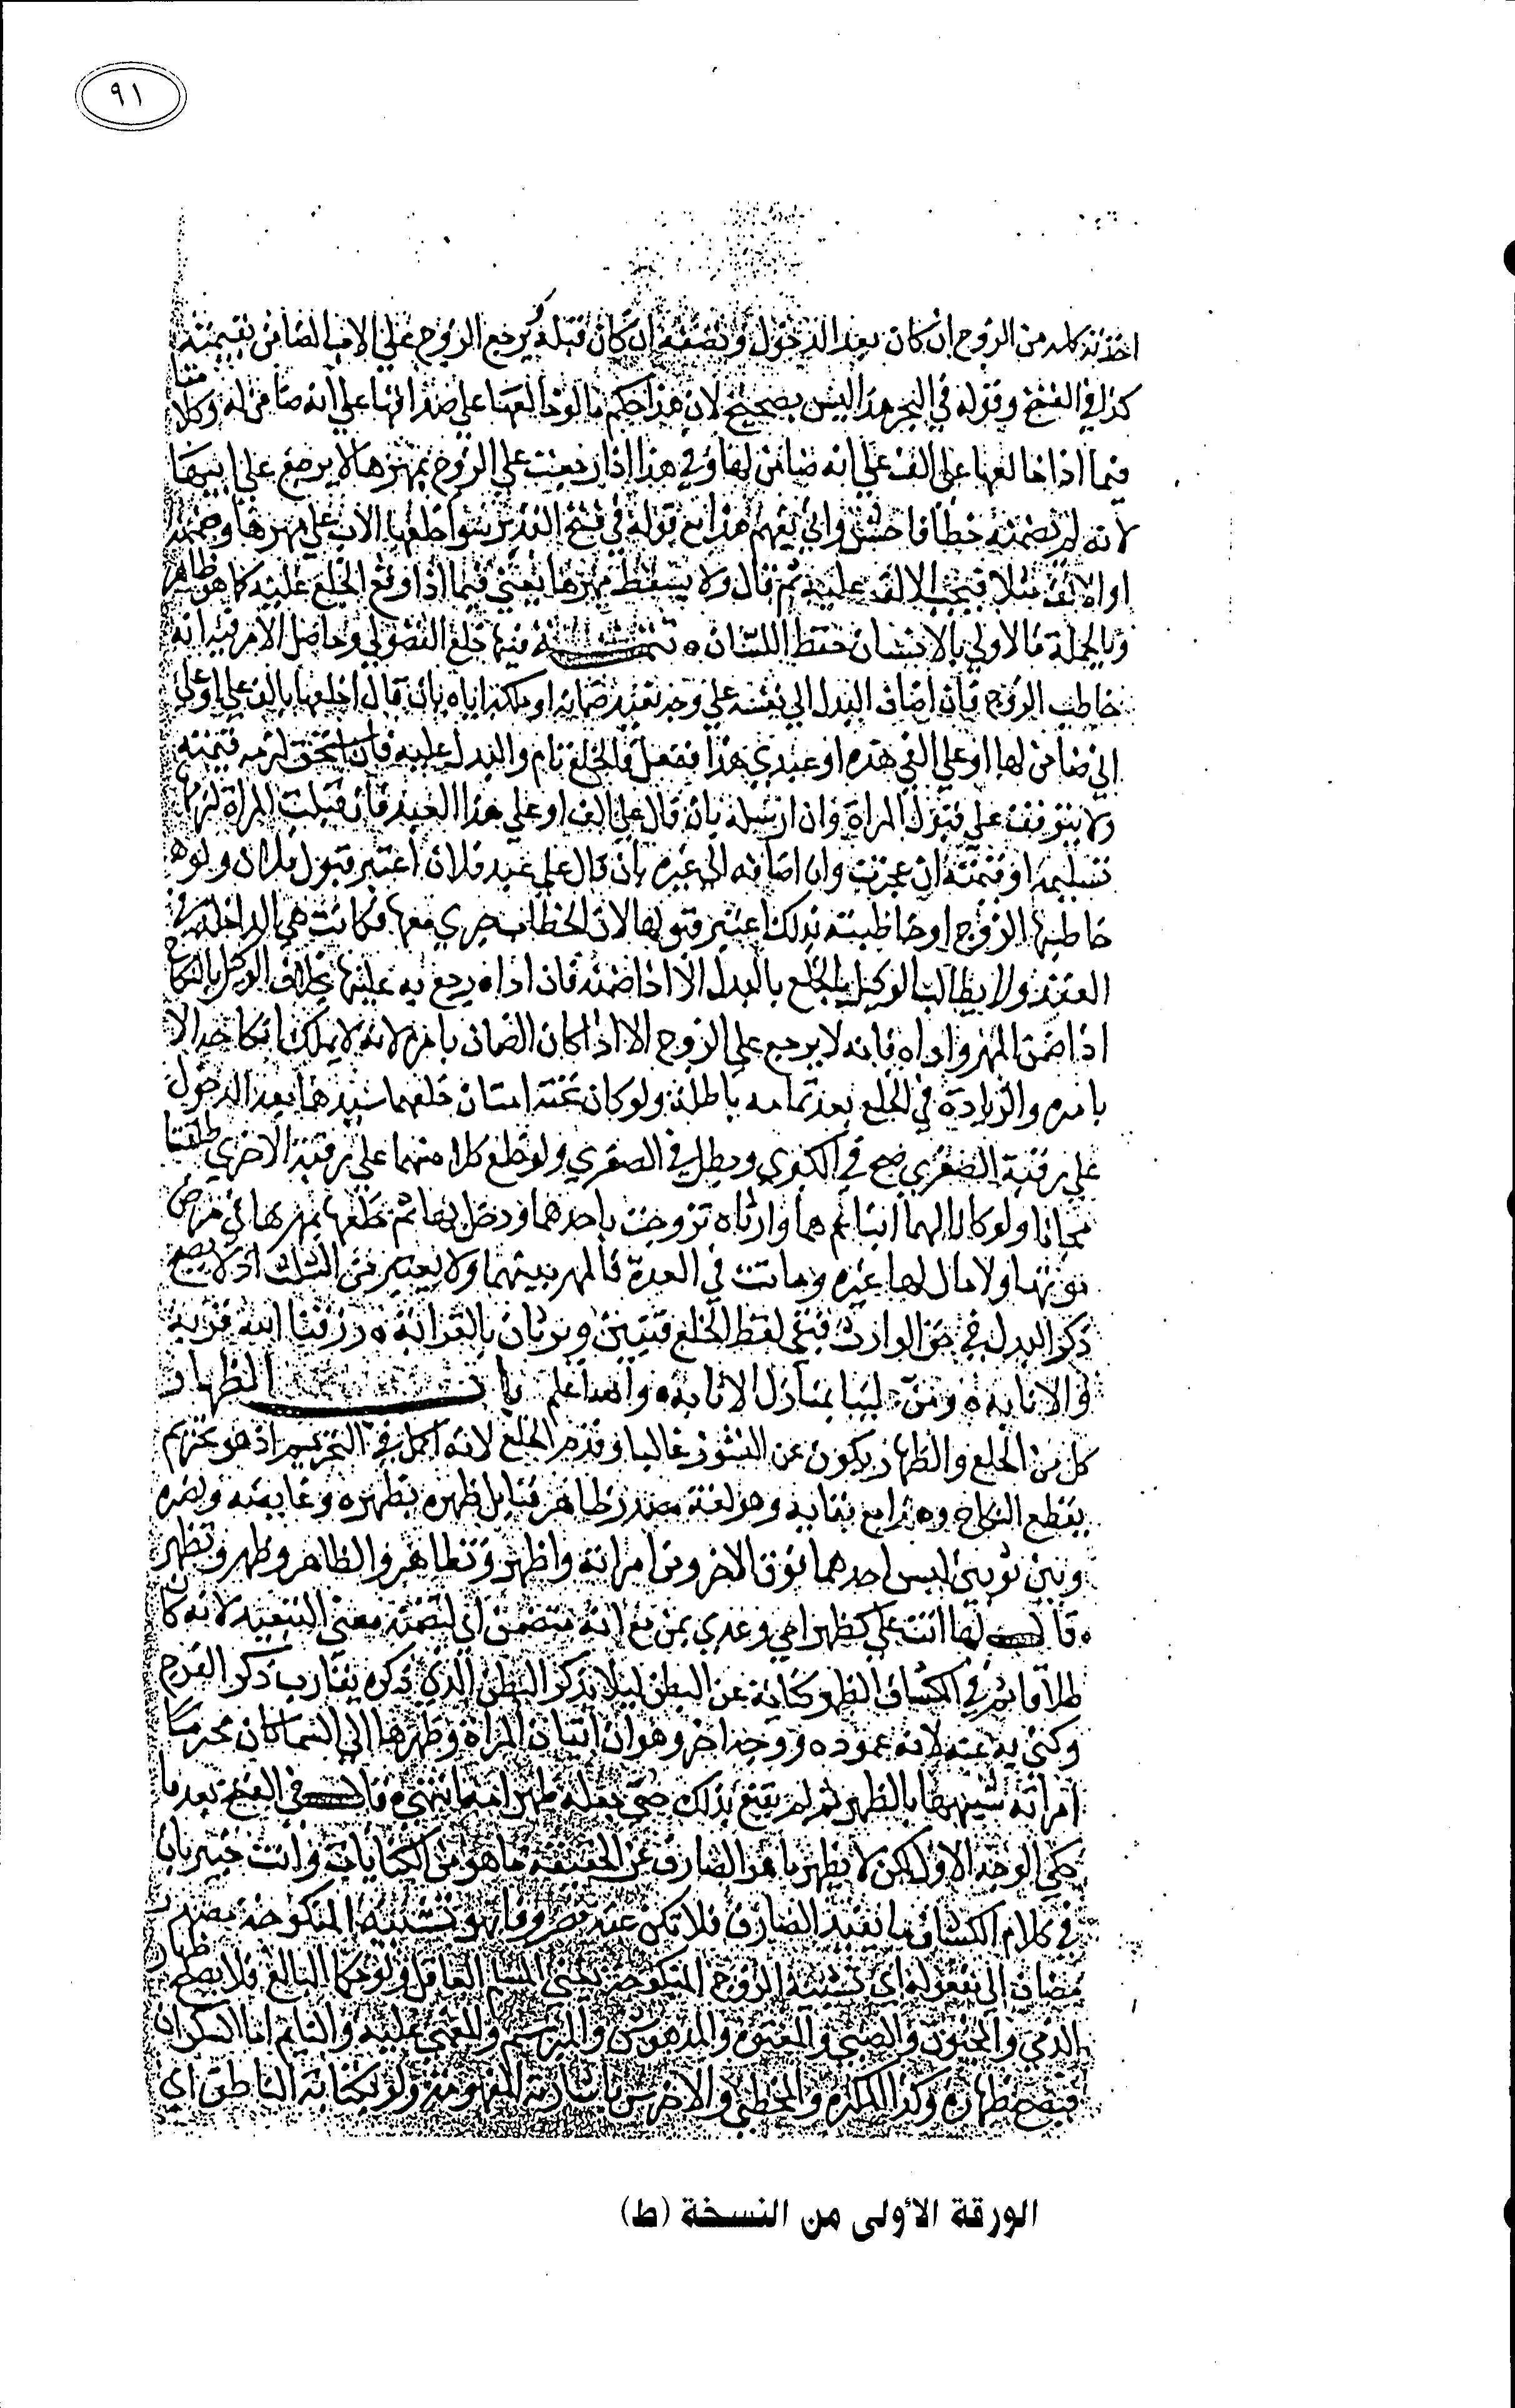 ٩١
اخذته كله من الزوج ان كان بعد الدخول ونصفه ان كان قبله ويرجع الزوج على الاب الضامن بقيمته
كذا في الفتح وقوله في البحر هذا ليس بصحيح لان هذا حكم ما لو خالعها على صداقها على انه ضامن له وكلامنا
فيما اذا خالعها على الف على انه ضامن لها وفي هذا اذا رجعت على الزوج بمهرها لا يرجع على ابيها
لانه لم يضمنه خطأ فاحش واني يفهم هذا مع قوله في فتح القدير سوا خلعها الاب على مهرها وضمنه
او الالف مثلا فيجب الالف عليه ثم قال ولا يسقط مهرها يعني فيما اذا وقع الخلع عليه كما هو ظاهر
وبالجملة فالاولى بالانسان حفظ اللسان ه تتمة فيها خلع الفضولي وحاصل الامر فيه انه
خاطب الزوج فان اضاف البدل الي نفسه علي وجه يفيد ضمانه او ملكه اياه بان قال اخلعها بالف علي او على
اني ضامن لها او علي الفي هذه او عبدي هذا ففعل فالخلع تام والبدل عليه فان استحق لزمه قيمته
ولا يتوقف علي قبول المراة وان ارسله بان قال علي الف او علي هذا العبد فان قبلت المراة لزمها
تسليمه او قيمته ان عجزت وان اضافه الى غيره بان قال علي عبد فلان اعتبر قبول فلان ولو
خاطبها الزوج او خاطبته بذلك اعتبر قبولها لان الخطاب جري معها فكانت هي الداخلة في
العقد ولا يطالب الوكيل بالخلع بالبدل الا اذا ضمنه فان اداه رجع به عليها بخلاف الوكيل بالنكاح
اذا ضمن المهر واداه فانه لا يرجع على الزوج الا اذا كان الضمان بامره لانه لا يملك انكاحه الا
بامره والزيادة في الخلع بعد تمامه باطلة ولو كان تحته امتان خلعهما سيدهما بعد الدخول
علي رقبة الصغري صح في الكبري وبطل في الصغري ولو خلع كلا منهما علي رقبة الاخري طلقتا
مجانا ولو كان لها ابنا عم هما وارثاه تزوجت باحدهما ودخل بها ثم خلعها بمهرها في مرض
موتها ولا مال لها غيره وماتت في العدة فالمهر بينهما ولا يعتبر من الثلث اذ لا يصح
ذكر البدل في حق الوارث فبقي لفظ الخلع فتبين ويرثان بالقرابة ه رزقنا الله قربه
والانابه ه ومن علينا بمنازل الانابه ه والله اعلم باب الظهار
كل من الخلع والظهار يكون عن النشوز غالبا وقدم الخلع لانه اكمل في التحريم اذ هو تحريم
بقطع النكاح وهذا مع بقايه وهو لغة مصدر ظاهر قابل ظهره بظهره وغايبته ونصره
وبين ثوبين لبس احدهما فوق الاخر ومن امراته واظهر وتظاهر والظاهر وظهر وتظهر
ه قال لها انت علي كظهر امي وعدي بمن مع انه متضمن اي لتضمنه معني التبعيد لانه كان
طلاقا ثم في الكشاف الظهر كناية عن البطن ليلا يذكر البطن الذي ذكره يقارب ذكر الفرج
وكني به عنه لانه عموده ووجه اخر وهو ان اتيان المراة وظهرها الي السما كان محرما
امراته شبهها بالظهر ثم لم يقنع بذلك حتى جعله ظهر امه انتهى ه قال في الفتح بعد ما
حكي الوجه الاول لكن لا يظهر ما هو الصارف عن الحقيقة ما هو من الكنايات وانت خبير بان
في كلام الكشاف ما يفيد الصارف فلا تكن عنده قصر وفا هو تشبيه المنكوحة مصدر
مضاف الي مفعوله اي تشبيه الزوج المنكوحة يعني المسلم العاقل ولو حكما البالغ فلا يصح ظهار
الذمي والمجنون والصبي والمعتوه والمدهوش والمبرسم والمغمي عليه والنايم اما السكران
فيصح ظهاره وكذا المكره والمخطي والاخرس باشارته المفهومة ولو بكتابة الناطق اي
الورقة الأولى من النسخة (ط)